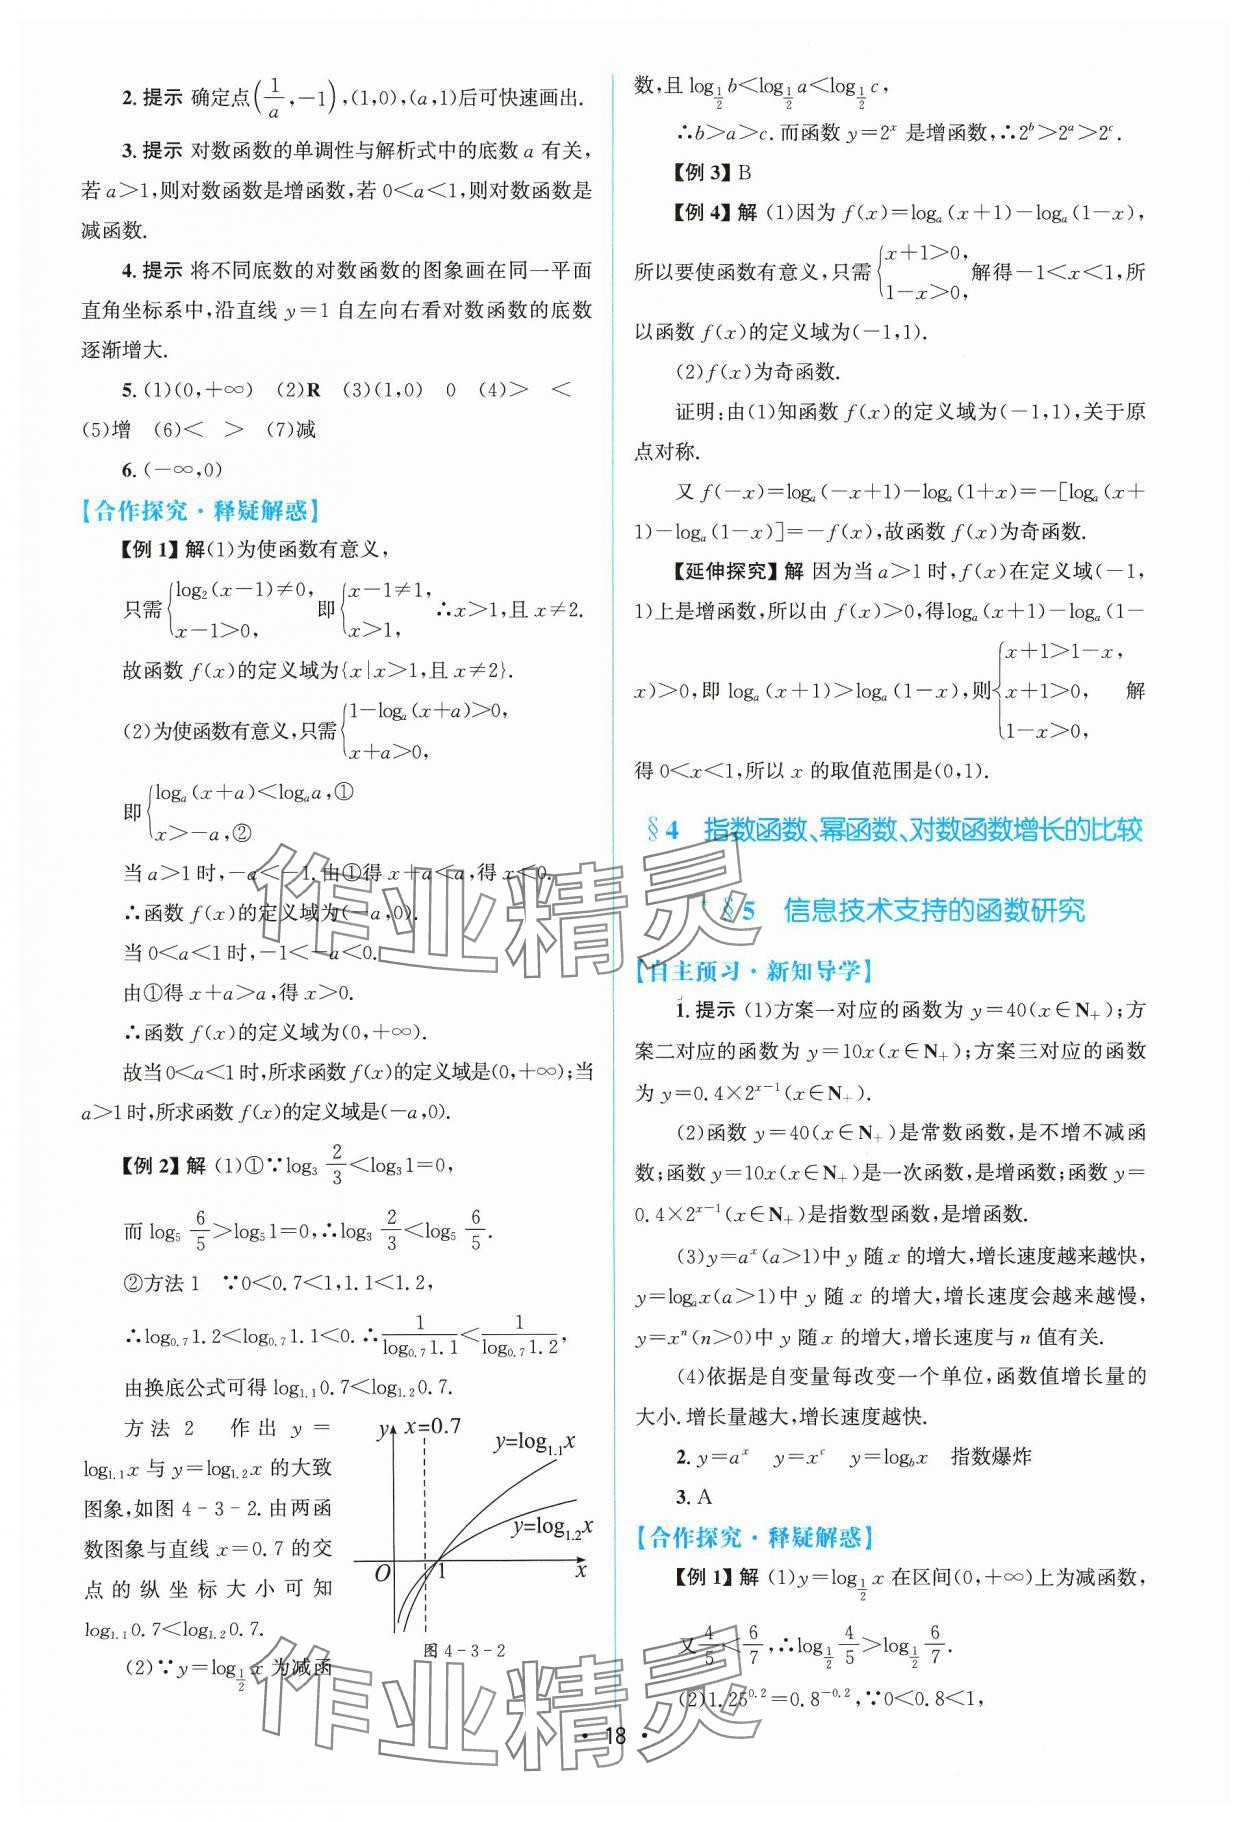 2. 提示 确定点(1/a,-1),(1,0),(a,1)后可快速画出.
3. 提示 对数函数的单调性与解析式中的底数 a 有关,
若 a>1,则对数函数是增函数,若 0<a<1,则对数函数是
减函数.
4. 提示 将不同底数的对数函数的图象画在同一平面
直角坐标系中,沿直线 y=1 自左向右看对数函数的底数
逐渐增大.
5. (1)(0,+∞) (2)R (3)(1,0) 0 (4)> <
(5)增 (6)< > (7)减
6. (-∞,0)
【合作探究·释疑解惑】
【例 1】解(1)为使函数有意义,
只需{log₂(x-1)≠0, x-1>0, 即{x-1≠1, x>1, ∴x>1,且 x≠2.
故函数 f(x)的定义域为{x|x>1,且 x≠2}.
(2)为使函数有意义,只需{1-logₐ(x+a)>0, x+a>0,
即{logₐ(x+a)<logₐa,① x>-a,②
当 a>1 时,-a<-1.由①得 x+a<a,得 x<0.
∴函数 f(x)的定义域为(-a,0).
当 0<a<1 时,-1<-a<0.
由①得 x+a>a,得 x>0.
∴函数 f(x)的定义域为(0,+∞).
故当 0<a<1 时,所求函数 f(x)的定义域是(0,+∞);当
a>1 时,所求函数 f(x)的定义域是(-a,0).
【例 2】解 (1)①∵log₃ 2/3<log₃1=0,
而 log₅ 6/5>log₅1=0,∴log₃ 2/3<log₅ 6/5.
②方法 1 ∵0<0.7<1,1.1<1.2,
∴log₀.₇1.2<log₀.₇1.1<0.∴1/log₀.₇1.1<1/log₀.₇1.2,
由换底公式可得 log₁.₁0.7<log₁.₂0.7.
方法 2 作出 y=
log₁.₁x 与 y=log₁.₂x 的大致
图象,如图 4-3-2.由两函
数图象与直线 x=0.7 的交
点的纵坐标大小可知
log₁.₁0.7<log₁.₂0.7.
y x=0.7
y=log₁.₁x
y=log₁.₂x
O 1 x
图 4-3-2
(2)∵y=log_{1/2} x 为减函
数,且 log_{1/2} b<log_{1/2} a<log_{1/2} c,
∴b>a>c.而函数 y=2ˣ 是增函数,∴2ᵇ>2ᵃ>2ᶜ.
【例 3】B
【例 4】解 (1)因为 f(x)=logₐ(x+1)-logₐ(1-x),
所以要使函数有意义,只需{x+1>0, 1-x>0, 解得-1<x<1,所
以函数 f(x)的定义域为(-1,1).
(2)f(x)为奇函数.
证明:由(1)知函数 f(x)的定义域为(-1,1),关于原
点对称.
又 f(-x)=logₐ(-x+1)-logₐ(1+x)=-[logₐ(x+
1)-logₐ(1-x)]=-f(x),故函数 f(x)为奇函数.
【延伸探究】解 因为当 a>1 时,f(x)在定义域(-1,
1)上是增函数,所以由 f(x)>0,得logₐ(x+1)-logₐ(1-
x)>0,即 logₐ(x+1)>logₐ(1-x),则{x+1>1-x, x+1>0, 1-x>0, 解
得 0<x<1,所以 x 的取值范围是(0,1).
§4 指数函数、幂函数、对数函数增长的比较
*§5 信息技术支持的函数研究
【自主预习·新知导学】
1. 提示 (1)方案一对应的函数为 y=40(x∈N₊);方
案二对应的函数为 y=10x(x∈N₊);方案三对应的函数
为 y=0.4×2ˣ⁻¹(x∈N₊).
(2)函数 y=40(x∈N₊)是常数函数,是不增不减函
数;函数 y=10x(x∈N₊)是一次函数,是增函数;函数 y=
0.4×2ˣ⁻¹(x∈N₊)是指数型函数,是增函数.
(3)y=aˣ(a>1)中 y 随 x 的增大,增长速度越来越快,
y=logₐx(a>1)中 y 随 x 的增大,增长速度会越来越慢,
y=xⁿ(n>0)中 y 随 x 的增大,增长速度与 n 值有关.
(4)依据是自变量每改变一个单位,函数值增长量的
大小.增长量越大,增长速度越快.
2. y=aˣ y=xᶜ y=log_b x 指数爆炸
3. A
【合作探究·释疑解惑】
【例 1】解 (1)y=log_{1/2} x 在区间(0,+∞)上为减函数,
又 4/5<6/7,∴log_{1/2} 4/5>log_{1/2} 6/7.
(2)1.25⁰·²=0.8⁻⁰·²,∵0<0.8<1,
· 18 ·
作业精灵
作业精灵